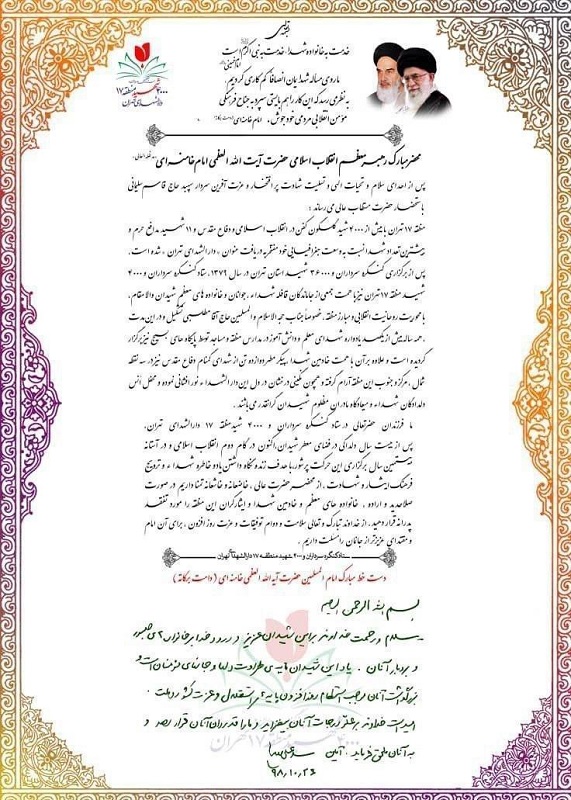 باسمه تعالی
خدمت به خانواده شهدا، خدمت به نبی اکرم است
امام خمینی
ما روی مساله شهدایمان انصافا کم کاری کردیم.
به نظر می رسد که این کار را هم بایستی سپرد به جناح فرهنگی
مؤمن انقلابی مردمی خودجوش. امام خامنه ای
۴۰۰۰
شهید منطقه ۱۷
دارالشهدای تهران
محضر مبارک رهبر معظم انقلاب اسلامی حضرت آیت الله العظمی امام خامنه ای
پس از اهدای سلام و تحیات الهی و تسلیت شهادت پر افتخار و عزت آفرین سردار سپهبد حاج قاسم سلیمانی
با استحضار حضرت مستطاب عالی می رساند :
منطقه ۱۷ تهران با بیش از ۴۰۰۰ شهید گلگون کفن در انقلاب اسلامی و دفاع مقدس و ۱۱ شهید مدافع حرم و
بیشترین تعداد شهدا نسبت به وسعت جغرافیایی خود مفتخر به دریافت عنوان ، دارالشهدای تهران ، شده است.
پس از برگزاری کنگره سرداران و ۳۶۰۰۰ شهید استان تهران در سال ۱۳۷۹، ستاد کنگره سرداران و ۴۰۰۰
شهید منطقه ۱۷ تهران نیز با همت جمعی از جاماندگان قافله شهداء ، جوانان و خانواده های معظم شهیدان والامقام،
با محوریت روحانیت انقلابی و مبارز منطقه، خصوصاً جناب حجه الاسلام و المسلمین حاج آقا مطلبی تشکیل و در این مدت
، همه ساله بیش از یکصد یادواره شهدای معلم و دانش آموز در مدارس منطقه و مساجد توسط پایگاه های بسیج نیز برگزار
گردیده است و علاوه بر آن با همت خادمین شهدا ، پیکر مطهر دوازده تن از شهدای گمنام دفاع مقدس نیز در سه نقطه
شمال ، مرکز و جنوب این منطقه آرام گرفته و همچون نگینی درخشان در دل این دارالشهداء نورافشانی نموده و محفل انس
دلدادگان شهداء و میعادگاه مادران مظلوم شهیدان گرانقدر می باشند .
ما فرزندان حضرتعالی در ستاد کنگره سرداران و ۴۰۰۰ شهید منطقه ۱۷ دارالشهدای تهران،
پس از بیست سال دلدادگی در فضای معطر شهیدان، اکنون در گام دوم انقلاب اسلامی و در آستانه
بیستمین سال برگزاری این حرکت پرشور، با هدف زنده نگاه داشتن یاد و خاطره شهداء و ترویج
فرهنگ ایثار و شهادت ، از محضر حضرت عالی ، خاضعانه و خاشعانه تمنا داریم در صورت
صلاحدید و اراده ، خانواده های معظم و خادمین شهدا و ایثارگران این منطقه را مورد تفقد
پدرانه قرار دهید . از خداوند تبارک و تعالی سلامت و دوام توفیقات و عزت روز افزون ، برای آن امام
و مقتدای عزیزتر از جانمان را مسئلت داریم .
ستاد کنگره سرداران و ۴۰۰۰ شهید منطقه ۱۷ دارالشهدا تهران
دست خط مبارک امام المسلمین حضرت آیه الله العظمی خامنه ای ( دامت برکاته )
بسم الله الرحمن الرحیم
سلام و رحمت خداوند بر این شهیدان عزیز و درود خدا بر خانواده های صبور
و بردبار آنان . یاد این شهیدان مایه ی طراوت دلها و جانهای مؤمنان است و
بزرگداشت آنان موجب استحکام روزافزون پایه های استقلال و عزت کشور و ملت .
امید است خداوند بر علو درجات آنان بیفزاید و ما را قدردان آنان قرار دهد و
به آنان ملحق فرماید . آمین
سید علی خامنه ای
۹۸،۱۰،۲۶
۴۰۰۰ شهید منطقه ۱۷ تهران